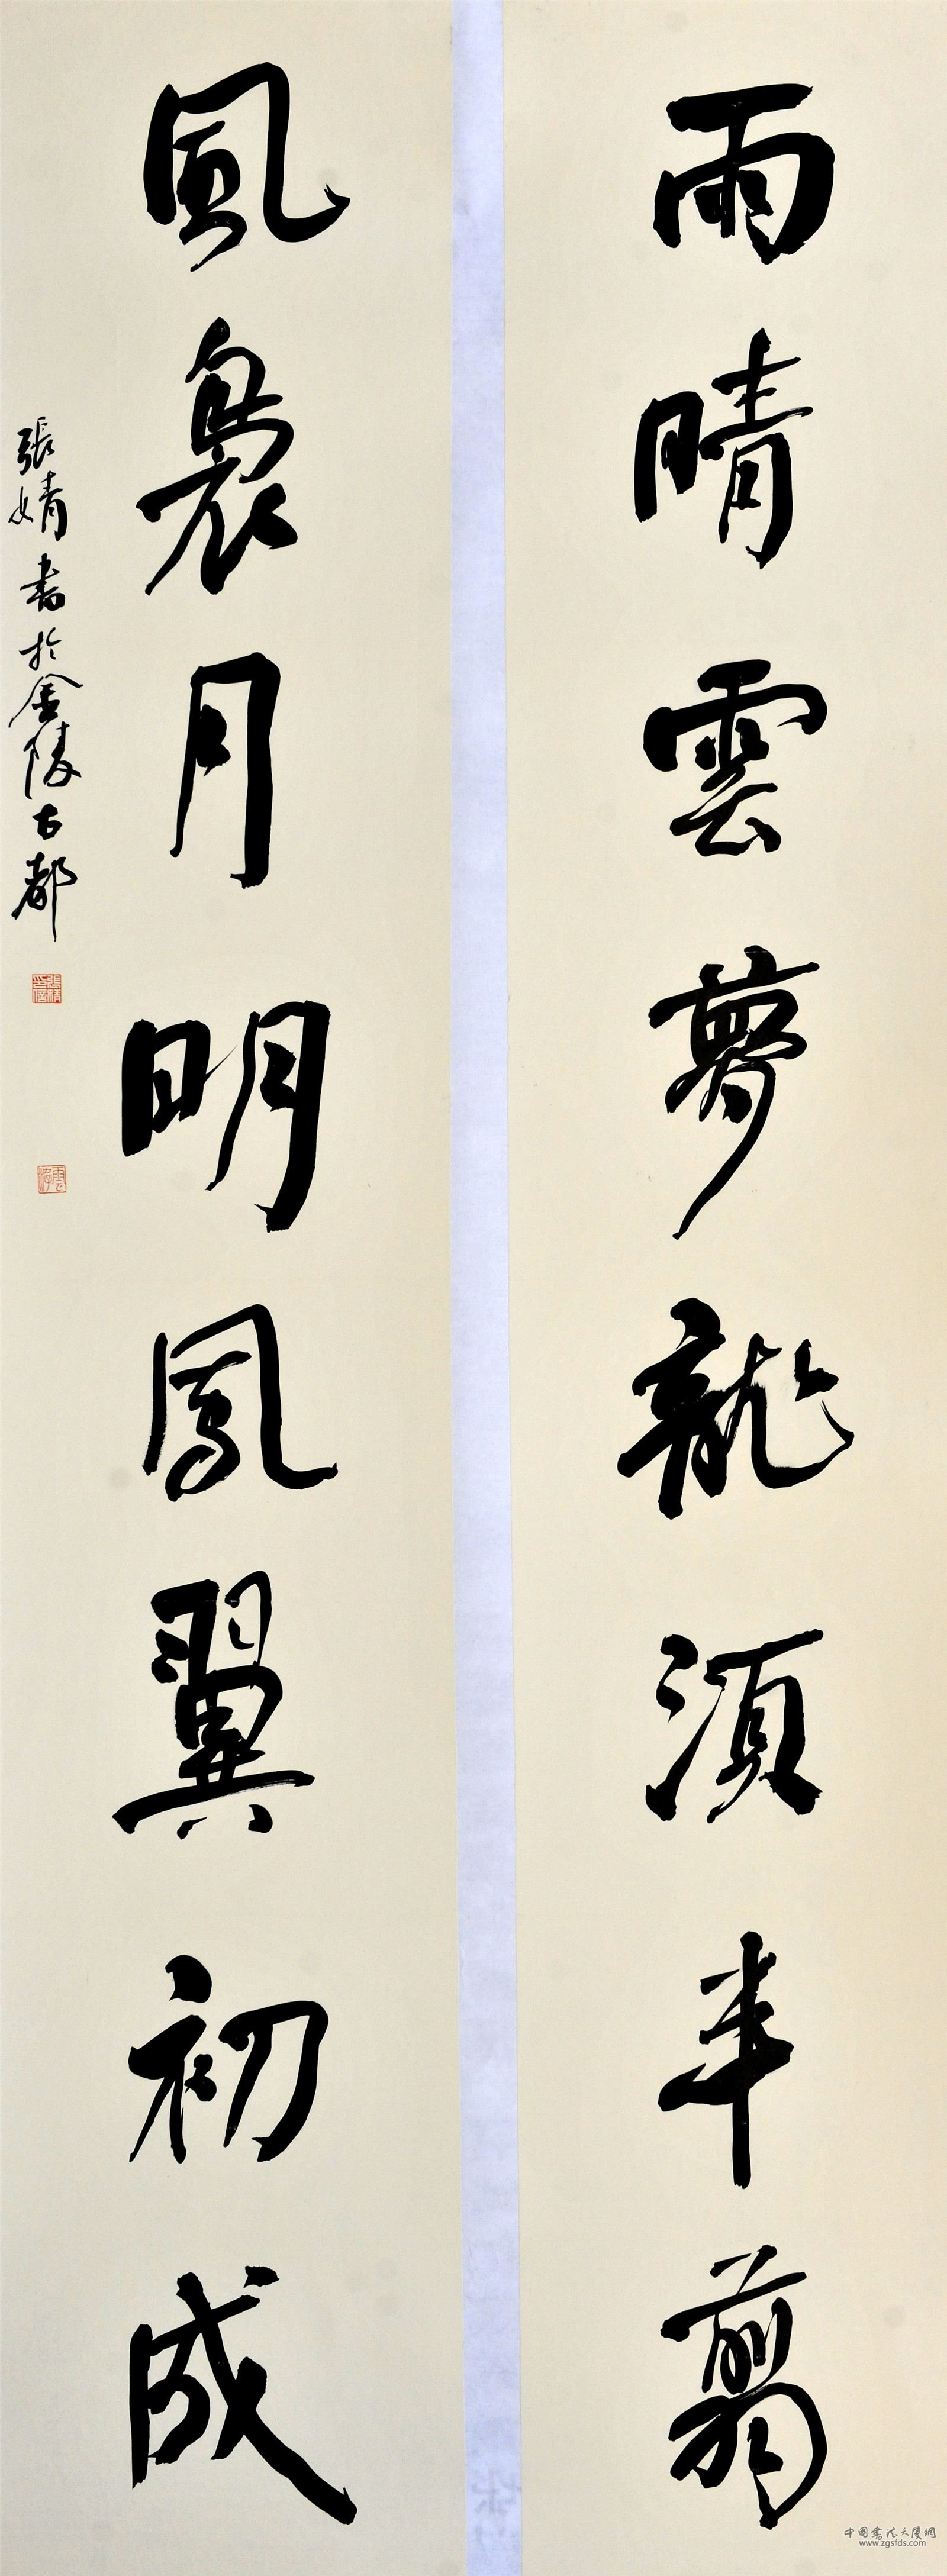 雨晴雲夢龍須半翦
風裊月明鳳翼初成
張婧書於金陵古都
中國書法大廈網
www.zgsfds.com